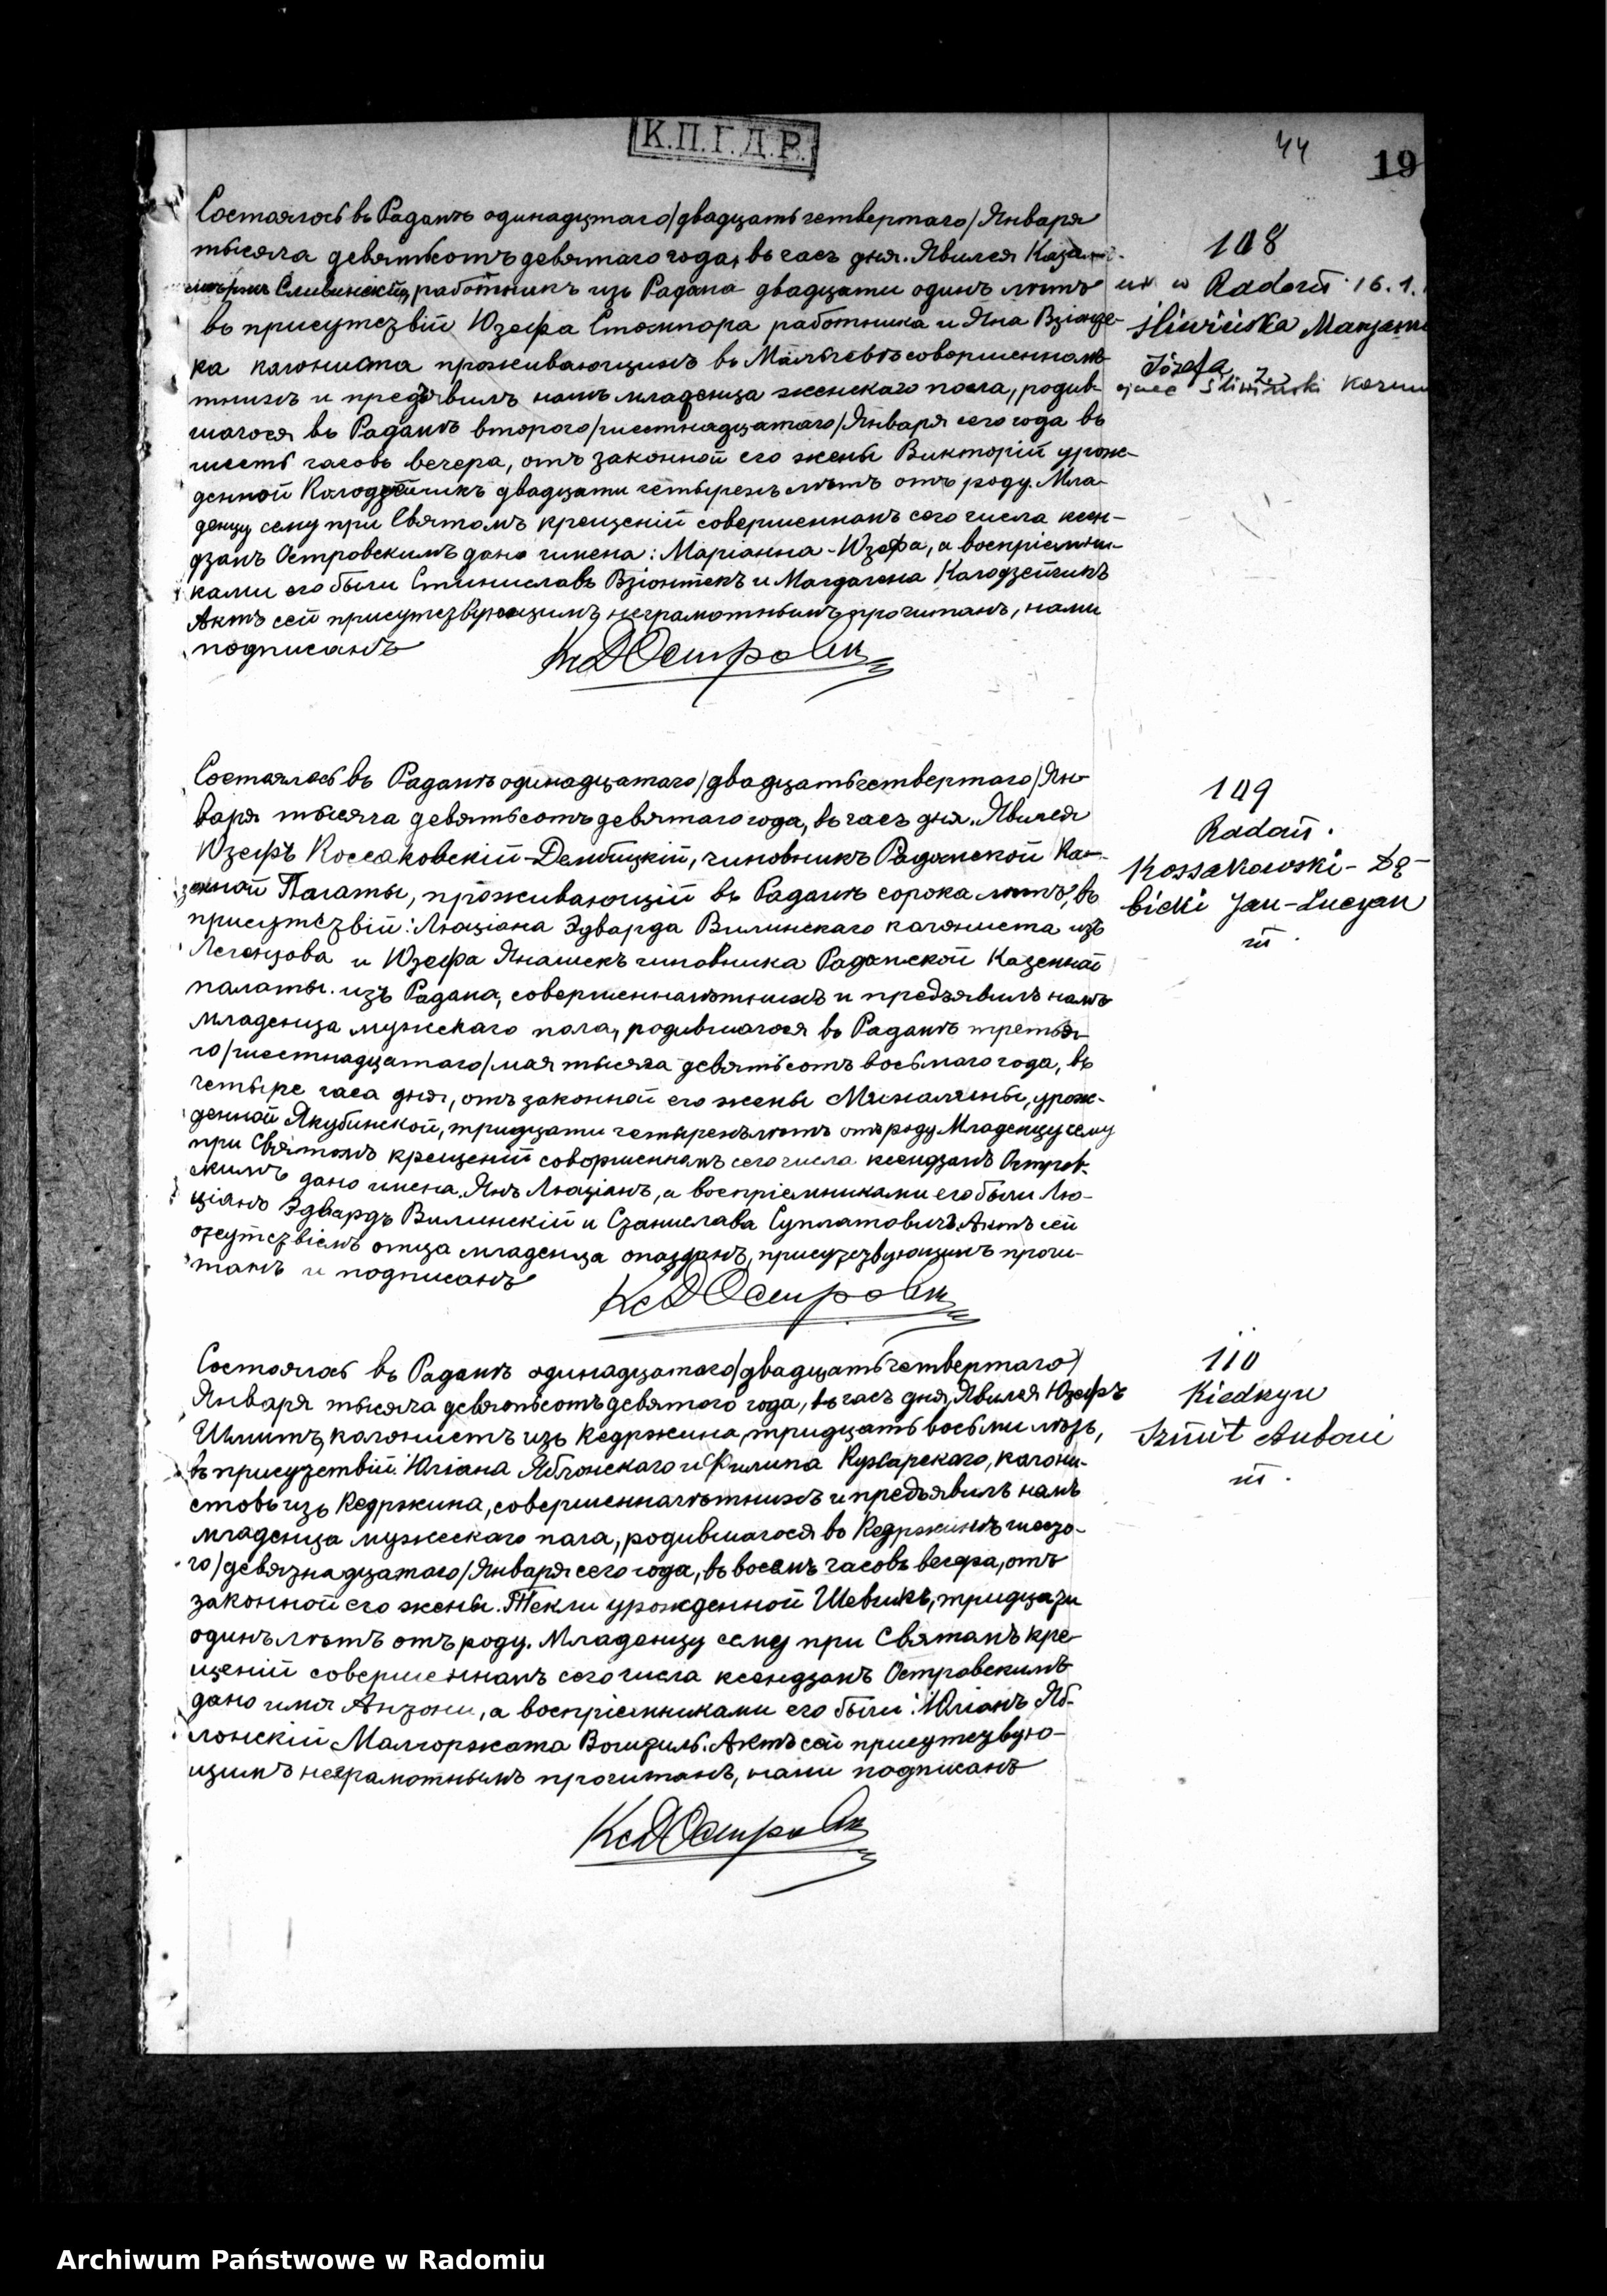 К.П.Г.Д.Р.
44
19
Состоялось въ Радомѣ одинадцтаго/двадцать четвертаго/Января
тысяча девятьсотъ девятаго года, въ часъ дня. Явился Кази-
Сливинскій, работникъ изъ Радома двадцати одинъ лѣтъ
въ присутствіи Юзефа Стомпора работника и Яна Взіонде-
ка колониста проживающихъ въ совершеннолѣ-
тнихъ и предъявилъ намъ младенца женскаго пола, родив-
шагося въ Радомѣ второго/шестнадцатаго/Января сего года въ
шесть часовъ вечера, отъ законной его жены Викторіи урож-
денной Колодзейчикъ двадцати четырехъ лѣтъ отъ роду. Мла-
денцу сему при Святомъ крещеніи совершенномъ сего числа ксен-
дзомъ Островскимъ дано имена: Маріанна-Юзефа, а воспріемни-
ками его были Станиславъ Взіонтекъ и Магдалена Колодзейчикъ
Актъ сей присутствующимъ неграмотнымъ прочитанъ, нами
подписанъ
КсДОстровск
108
ur w Radom 16.1.
Śliwińska Marjanna
Józefa
ojciec Śliwiński Kazim
Состоялось въ Радомѣ одинадцатаго/двадцать четвертаго/Ян-
варя тысяча девятьсотъ девятаго года, въ часъ дня. Явился
Юзефъ Коссаковскій-Дембицкій, чиновникъ Радомской Ка-
зенной Палаты, проживающій въ Радомѣ сорока лѣтъ, въ
присутствіи: Люціана Эдварда Вилинскаго колониста изъ
Легензова и Юзефа Янашекъ чиновника Радомской Казенной
палаты изъ Радома, совершеннолѣтнихъ и предъявилъ намъ
младенца мужскаго пола, родившагося въ Радомѣ третья-
го/шестнадцатаго/мая тысяча девятьсотъ восьмаго года, въ
четыре часа дня, отъ законной его жены Михалины, урож-
денной Якубинской, тридцати четырехъ лѣтъ отъ роду Младенцу сему
при Святомъ крещеніи совершенномъ сего числа ксендзомъ Остров-
скимъ дано имена Янъ Люціанъ, а воспріемниками его были Лю-
ціанъ Эдвардъ Вилинскій и Станислава Суплатовичъ. Актъ сей
отсутствіемъ отца младенца опозданъ, присутствующимъ прочи-
танъ и подписанъ
КсДОстровск
109
Radom.
Kossakowski-Dę-
bicki Jan-Lucyan
m.
Состоялось въ Радомѣ одинадцатаго/двадцать четвертаго/
Января тысяча девятьсотъ девятого года, въ часъ дня, Явился Юзефъ
Шмитъ, колонистъ изъ Кедржина, тридцать восьми лѣтъ,
въ присутствіи: Юліана Яблонскаго и Филипа Кухарскаго, колони-
стовъ изъ Кедржина, совершеннолѣтнихъ и предъявилъ намъ
младенца мужескаго пола, родившагося въ Кедржинѣ шесто-
го/девятнадцатаго/Января сего года, въ восемъ часовъ вечера, отъ
законной его жены Текли урожденной Шевчикъ, тридцати
одинъ лѣтъ отъ роду. Младенцу сему при Святомъ кре-
щеніи совершенномъ сего числа ксендзомъ Островскимъ
дано имя Антони, а воспріемниками его были: Юліанъ Яб-
лонскій Малгоржата Актъ сей присутствую-
щимъ неграмотнымъ прочитанъ, нами подписанъ
КсДОстровск
110
Kiedrzyn
Szmit Antoni
m.
Archiwum Państwowe w Radomiu